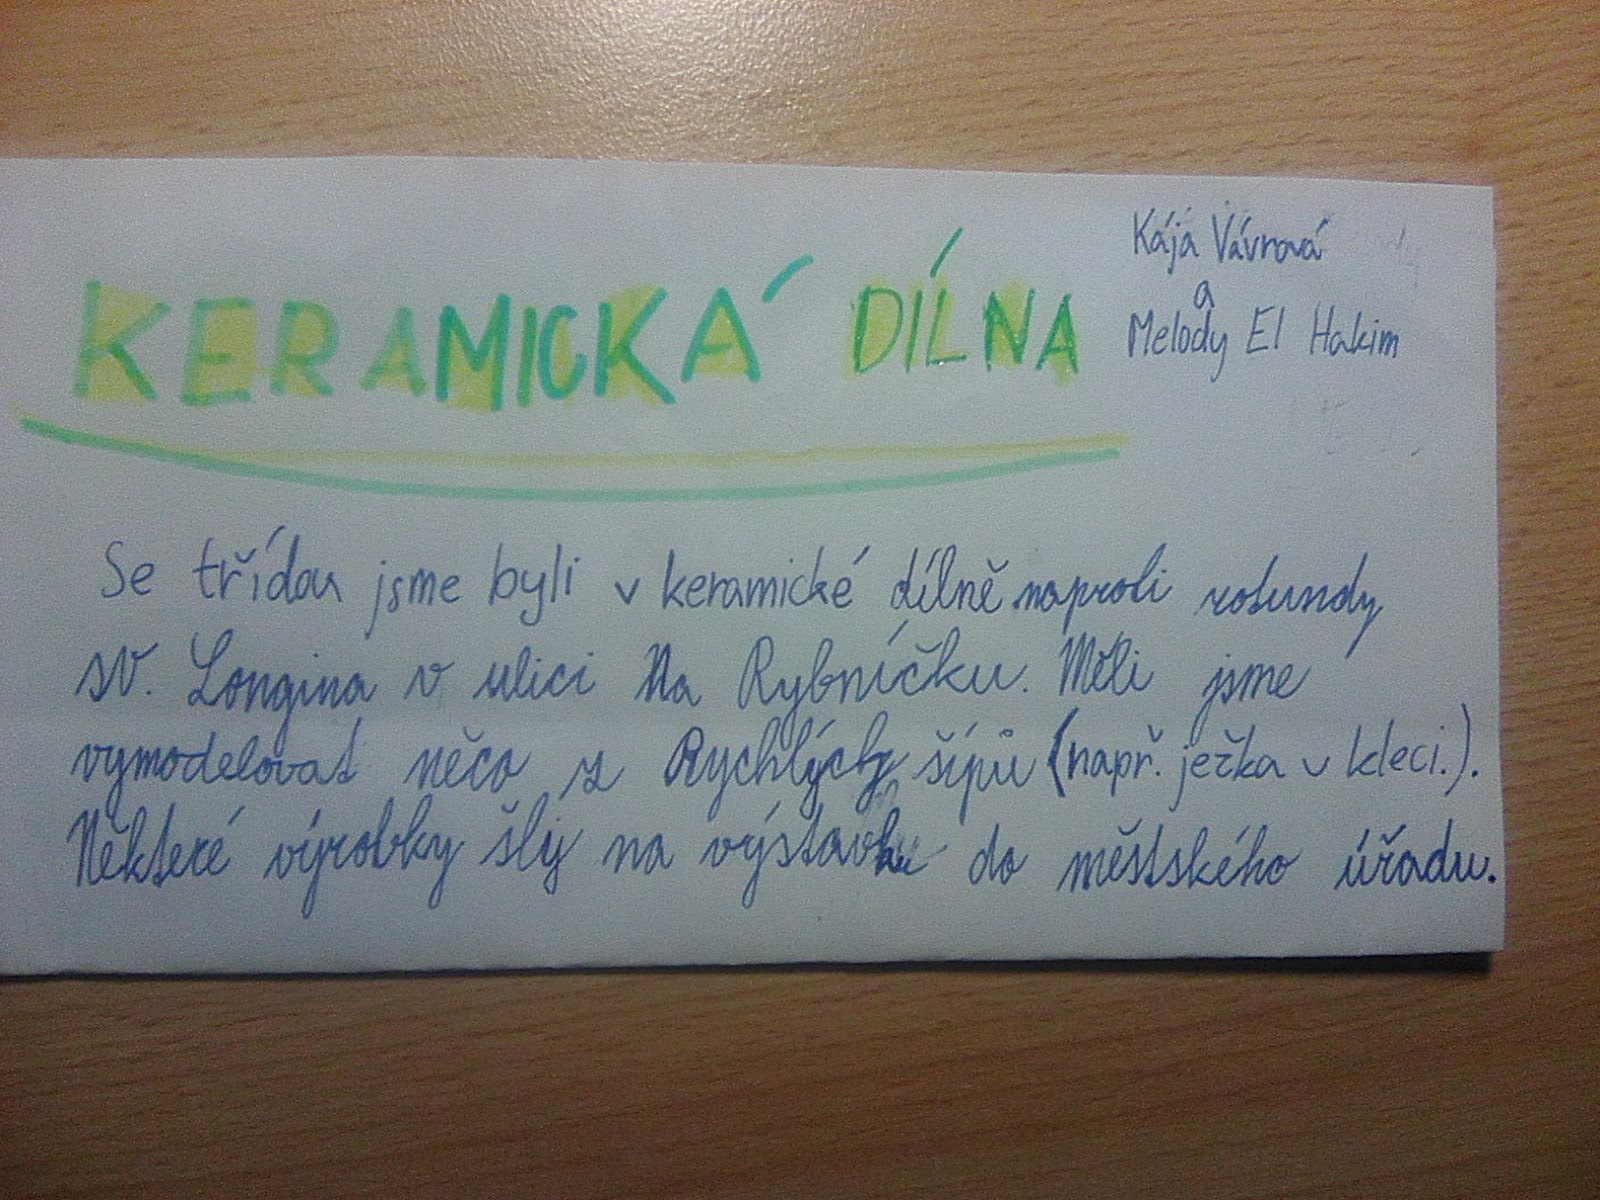 KERAMICKÁ DÍLNA
Kája Vávrová
a
Melody El Hakim
Se třídou jsme byli v keramické dílně naproti rotundy
sv. Longina v ulici Na Rybníčku. Měli jsme
vymodelovat něco z Rychlých šípů (např. ježka v kleci.).
Některé výrobky šly na výstavku do městského úřadu.